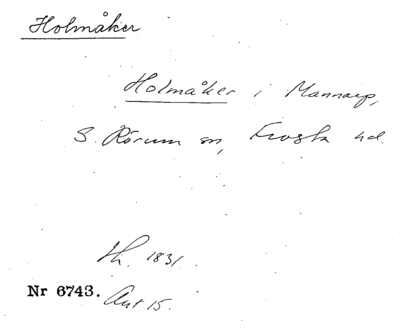 Holmåker
Holmåker i Mannarp,
S. Rörum sn, Frosta hd.
1831.
Nr 6743. Akt 15.